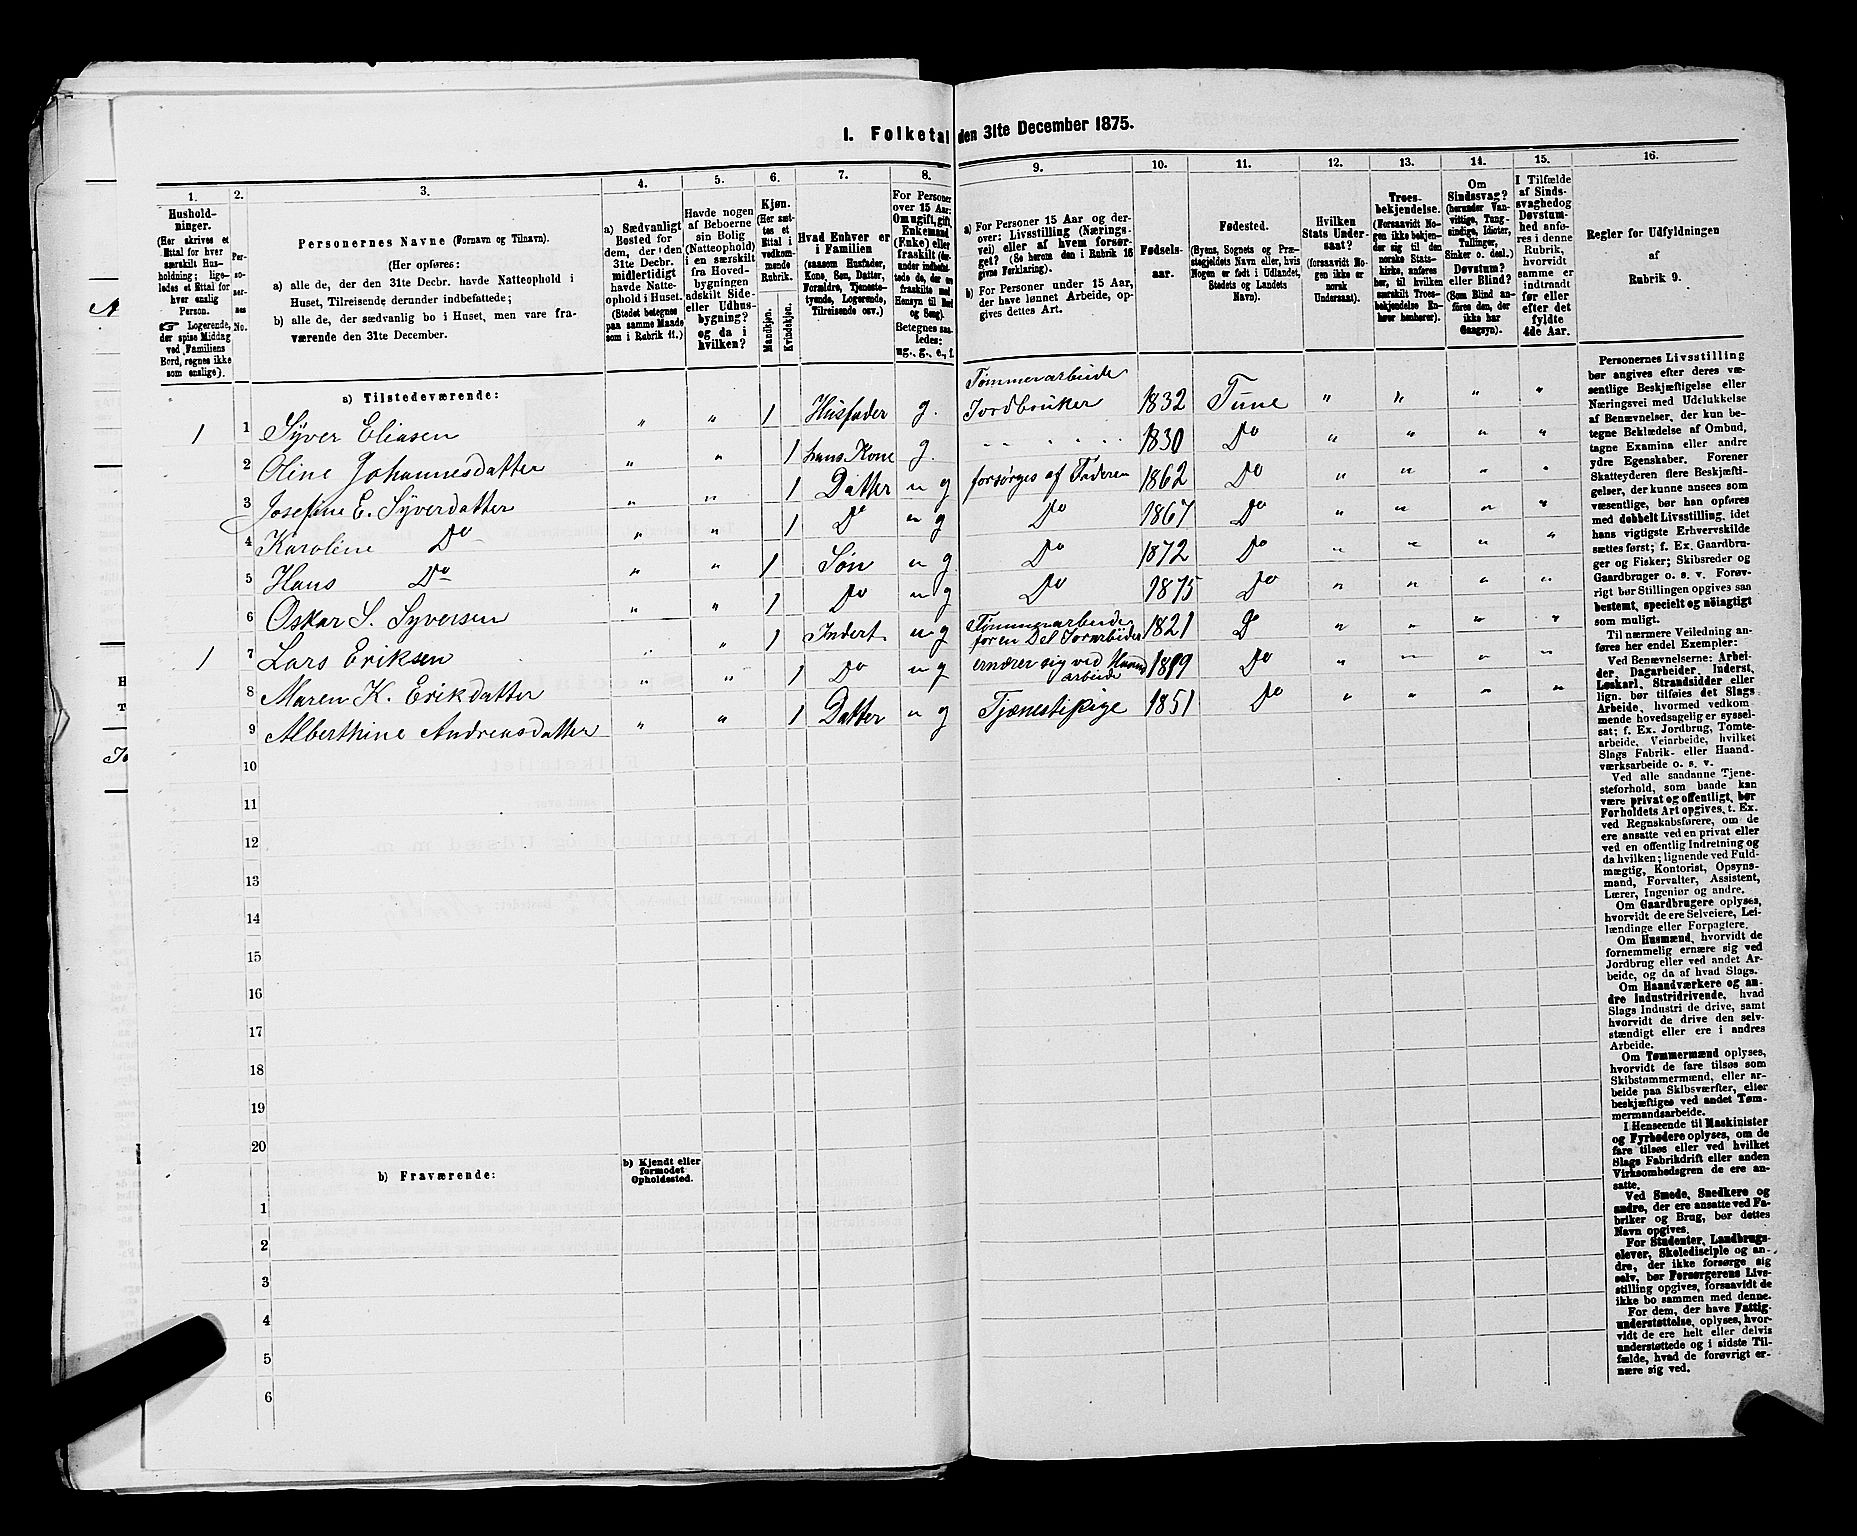 I. Folketal den 31te December 1875.
1.
Hushold-
ninger.
(Her skrives et
Ettal for hver
særskilt Hus-
holdning; lige-
ledes et Ettal for
hver enslig
Person.
Logerende,
der spise Middag
ved Familiens
Bord, regnes ikke
som enslige).
2.
Per-
so-
ner-
nes
No.
3.
Personernes Navne (Fornavn og Tilnavn).
(Her opføres:
a) alle de, der den 31te Decbr. havde Natteophold i
Huset, Tilreisende derunder indbefattede;
b) alle de, der sædvanlig bo i Huset, men vare fra-
værende den 31te December.
4.
a) Sædvanligt
Bosted for
dem, der i den
31te Decbr.
midlertidigt
havde Natte-
ophold i Huset.
(Stedet betegnes
paa samme Maade
som i Rubrik 11.)
5.
Havde nogen
af Beboerne
sin Bolig
(Natteophold)
i en særskilt
fra Hoved-
bygningen
adskilt Side-
eller Udhus-
bygning?
og da i
hvilken?
6.
Kjøn.
(Her sæt-
tes et
Ettal i
vedkom-
mende
Rubrik.
Mandkjøn.
Kvindekjøn.
7.
Hvad Enhver er
i Familien
(saasom Husfader,
Kone, Søn, Datter,
Forældre, Tjeneste-
tyende, Logerende,
Tilreisende osv.)
8.
For Personer
over 15 Aar:
Om ugift, gift,
Enkemand
(Enke) eller
fraskilt
Betegnes saa-
ledes:
ug., g., e., f.
9.
a) For Personer 15 Aar og der-
over: Livsstilling (Nærings-
vei) eller af hvem forsør-
get? (Se herom den i Rubrik 16
givne Forklaring).
b) For Personer under 15 Aar,
der have lønnet Arbeide, op-
gives dettes Art.
10.
Fødsels-
aar.
11.
Fødested.
(Byens, Sognets og Præ-
stegjeldets Navn eller, hvis
Nogen er født i Udlandet,
Stedets og Landets
Navn).
12.
Hvilken
Stats Under-
saat?
(forsaavidt No-
gen ikke er
norsk
Undersaat).
13.
Troes-
bekjendelse.
(Forsaavidt No-
gen ikke bekjen-
der sig til den
norske Stats-
kirke, anføres
her, til hvilken
særskilt Troes-
bekjendelse En-
hver henhører).
14.
Om
Sindssvag?
(herunder Van-
vittige, Tung-
sindige, Idioter,
Tullinger,
Sinker o. desl.)
Døvstum?
eller Blind?
(Som Blind an-
føres den, der
ikke har
Gangsyn).
15.
I Tilfælde
af Sinds-
svaghed og
Døvstum-
hed anfø-
res i denne
Rubrik,
hvorvidt
samme er
indtraadt
før eller
efter det
fyldte
4de Aar.
16.
Regler for Udfyldningen
af
Rubrik 9.
a) Tilstedeværende:
1 1 Syver Eliasen " " 1 Husfader g. Tømmerarbeide Jordbruker 1832 Tune " " " "
2 Oline Johannesdatter " " 1 hans Kone g. " " " " " 1830 Do " " " "
3 Josefine E. Syverdatter " " 1 Datter u g forsørges af Faderen 1862 Do " " " "
4 Karoline Do " " 1 Do u g Do 1867 Do " " " "
5 Hans Do " " 1 Søn u g Do 1872 Do " " " "
6 Oskar S. Syversen " " 1 Do u g Do 1875 Do " " " "
1 7 Lars Eriksen " " 1 Inderst u g Tømmerarbeide for en Del Jorarbeide 1821 Do " " " "
8 Maren K. Erikdatter " " 1 Do u g ernærer sig ved Haand arbeide 1819 Do " " " "
9 Alberthine Andreasdatter " " 1 Datter u g Tjænestepige 1851 Do " " " "
10
11
12
13
14
15
16
17
18
19
20
b) Fraværende:
b) Kjendt eller
formodet
Opholdssted.
1
2
3
4
5
6
Personernes Livsstilling
bør angives efter deres væ-
sentlige Beskjæftigelse eller
Næringsvei med Udelukkelse
af Benævnelser, der kun be-
tegne Beklædelse af Ombud,
tagne Examina eller andre
ydre Egenskaber. Forener
Skatteyderen flere Beskjæfti-
gelser, der kunne ansees som
væsentlige, bør han opføres
med dobbelt Livsstilling, idet
hans vigtigste Erhvervskilde
sættes først; f. Ex. Gaardbru-
ger og Fisker; Skibsreder og
Gaardbruger o. s. v. Forøv-
rigt bør Stillingen opgives saa
bestemt, specielt og nøiagtigt
som muligt.
Til nærmere Veiledning an-
føres her endel Exempler:
Ved Benævnelserne: Arbei-
der, Dagarbeider, Inderst,
Løskarl, Strandsidder eller
lign. bør tilføies det Slags
Arbeide, hvormed vedkom-
mende hovedsagelig er syssel-
sat; f. Ex. Jordbrug, Tomte-
arbeide, Veiarbeide, hvilket
Slags Fabrik- eller Haand-
værksarbeide o. s. v.
Ved alle saadanne Tjene-
steforhold, som baade kan
være privat og offentligt, bør
Forholdets Art opgives, t. Ex.
ved Regnskabsførere, om de
ere ansatte ved en privat eller
ved en offentlig Indretning og
da hvilken; lignende ved Fuld-
mægtig, Kontorist, Opsyns-
mand, Forvalter, Assistent,
Lærer, Ingeniør og andre.
Om Gaardbrugere oplyses,
hvorvidt de ere Selveiere, Lei-
lændinge eller Forpagtere.
Om Husmænd, hvorvidt de
fornemmelig ernære sig ved
Jordbrug eller ved andet Ar-
beide, og da af hvad Slags.
Om Haandværkere og an-
dre Industridrivende, hvad
Slags Industri de drive, samt
hvorvidt de drive den selv-
stændigt eller ere i andres
Arbeide.
Om Tømmermænd oplyses,
hvorvidt de fare tilsøs som
Skibstømmermænd, eller ar-
beide paa Skibsværfter, eller
beskjæftiges ved andet Tøm-
mermandsarbeide.
I Henseende til Maskinister
og Fyrbødere oplyses, om de
fare tilsøs eller ved hvilket
Slags Fabrikdrift eller anden
Virksomhedsgren de ere an-
satte.
Ved Smede, Snedkere og
andre, der ere ansatte ved Fa-
briker og Brug, bør dettes
Navn opgives.
For Studenter, Landbrugs-
elever, Skoledisciple og an-
dre, der ikke forsørge sig
selv, bør Forsørgerens Livs-
stilling opgives, forsaavidt de
ikke bo sammen med denne.
For dem, der have Fattig-
understøttelse, oplyses, hvor-
vidt de ere helt eller delvis
understøttede og i sidste Til-
fælde, hvad de forøvrigt er-
nære sig ved.